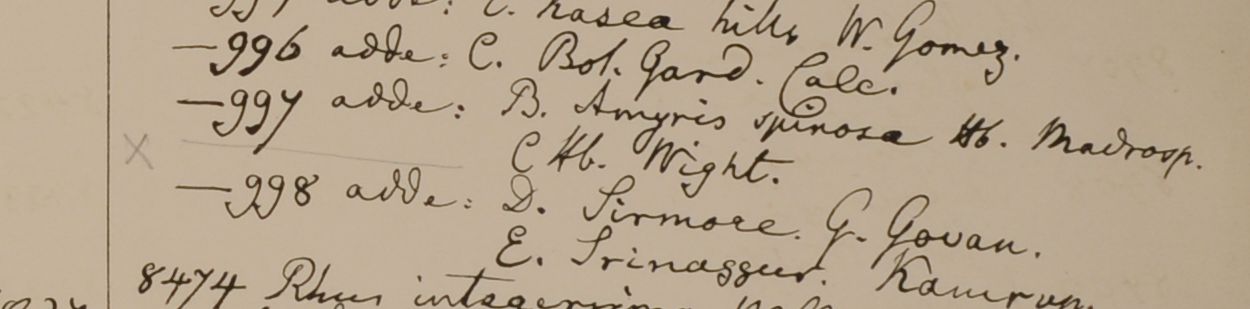 adde: C. hasea hills W. Gomez.
—996 adde: C. Bot. Gard. Calc.
—997 adde: B. Amyris spinosa Hb. Madrasp.
C Hb. Wight.
—998 adde: D. Sirmore. G. Govan.
E. Srinaggur. Kamrup.
8474 Rhus integerrima